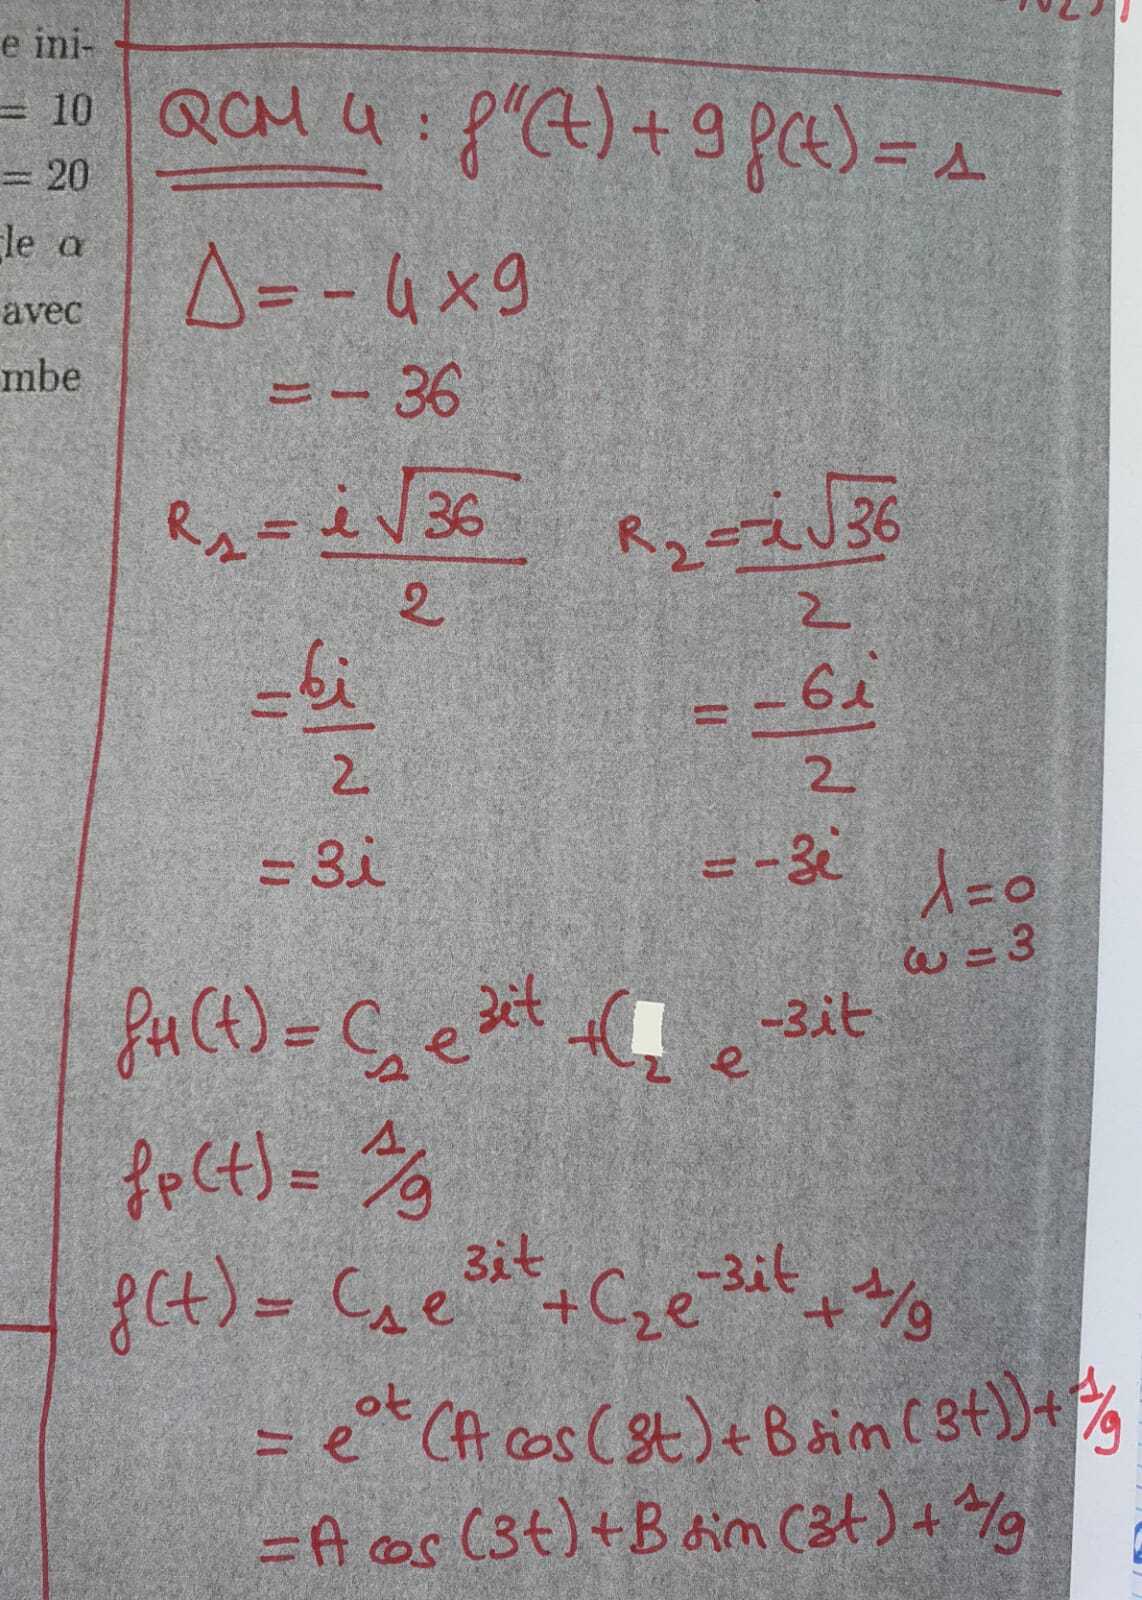 N2)
e ini-
= 10
= 20
gle α
avec
mbe
QCM 4 : f''(t) + 9 f(t) = 1
Δ = - 4 × 9
= - 36
R1 = i√36 / 2    R2 = -i√36 / 2
= 6i / 2    = -6i / 2
= 3i    = -3i
λ = 0
ω = 3
fH(t) = C1 e^3it + C2 e^-3it
fp(t) = 1/9
f(t) = C1 e^3it + C2 e^-3it + 1/9
= e^0t (A cos(3t) + B sin(3t)) + 1/9
= A cos(3t) + B sin(3t) + 1/9